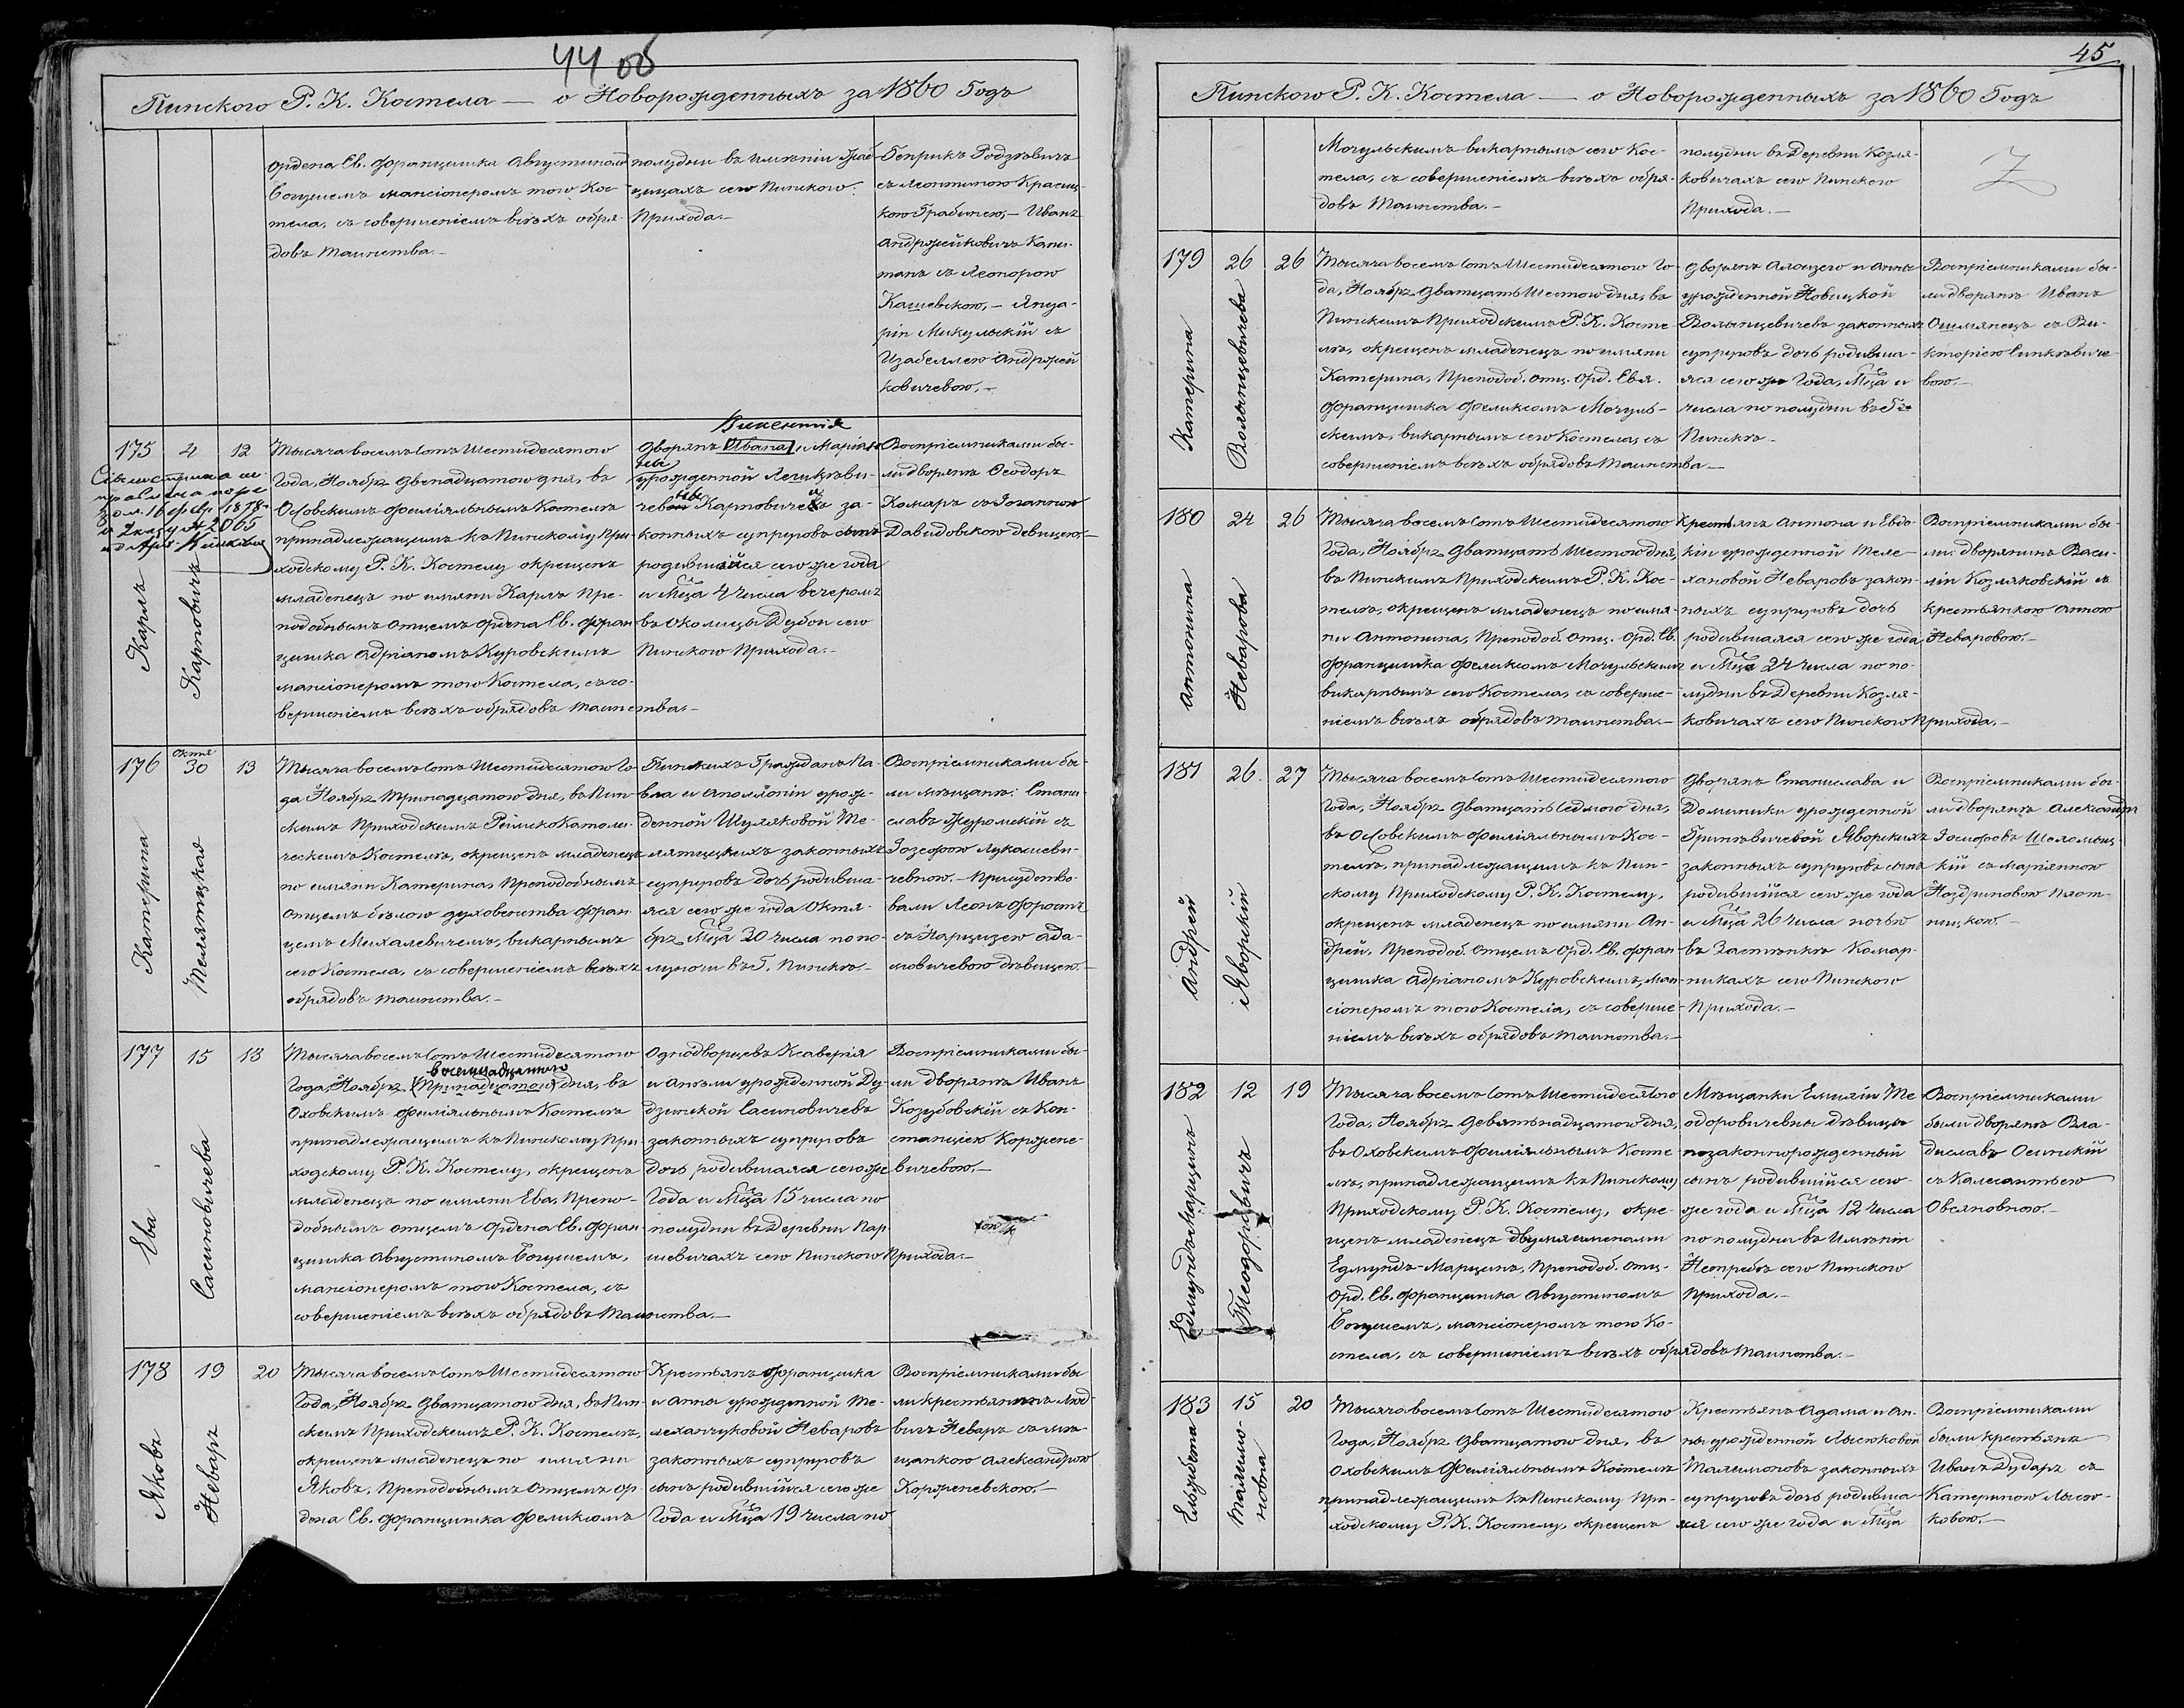 44 об
Пинского Р. К. Костела — о Новорожденныхъ за 1860 Годъ
ордена Св. Франциска Августиномъ
Богушемъ мансіонеромъ того Кос-
тела, съ совершеніемъ всѣхъ обря-
довъ таинства.-
полудни въ имѣніи
сего Пинского
Прихода.-
Генрикъ Родзѣвичъ
съ Леонтиною Красиц-
кою Грабиною,- Иванъ
Андржейковичъ Капи-
танъ съ Леонорою
Кашевскою,-
Микульскій съ
Изабеллею Андржей
ковичевою.-
175
4
12
Карлъ
Карповичъ
Тысяча восемъ сотъ Шестидесятого
Года, Ноября двенадцатого дня, въ
Осовскимъ Филіяльнымъ Костелѣ
принадлежащимъ къ Пинскому При-
ходскому Р. К. Костелу окрещенъ
младенецъ по имяни Карлъ Пре-
подобнымъ Отцемъ ордена Св. Фран
циска Адріаномъ Куровскимъ
мансіонеромъ того Костела, съ со-
вершеніемъ всѣхъ обрядовъ таинства.-
Викентія
Дворянъ Ивана и Маріан
урожденной
Карповиче за-
конныхъ супруговъ сынъ
родившійся сего же года
и Мца 4 числа вечеромъ
въ Околицы Дубои сего
Пинского Прихода.-
Воспріемниками бы-
ли дворяне Ѳеодоръ
Комаръ съ Іоганною
Давидовскою девицею.-
176
Октя
30
13
Катерина
Телятицкая
Тысяча восемъ сотъ Шестидесятого Го-
да Ноября Тринадцатого дня, въ Пин-
скимъ Приходскимъ Римско Католи-
ческимъ Костелѣ, окрещенъ младенецъ
по имяни Катерина, Преподобнымъ
Отцемъ бѣлого духовенства Фран-
цемъ Михалевичемъ, викарнымъ
сего Костела, съ совершеніемъ всѣхъ
обрядовъ таинства.-
Пинскихъ Гражданъ Па-
вла и Аполлоніи урож-
денной Шуляковой Те-
лятицкихъ законныхъ
супруговъ дочь родивша-
яся сего же года Октя-
бря Мца 30 числа по по-
луночи въ Г. Пинскѣ.-
Воспріемниками бы-
ли мѣщане: Стани-
славъ Журомскій съ
Іозефою Лукашеви-
чевною.- Присудство-
вали Леонъ Форостъ
съ Нарцизею Ада-
мовичевою дѣвицею.-
177
15
18
Ева
Сасиновичева
Тысяча восемъ сотъ Шестидесятого
восемнадцатого
Года, Ноября (Тринадцатого) дня, въ
Оховскимъ Филіяльнымъ Костелѣ
принадлежащимъ къ Пинскому При
ходскому Р. К. Костелу, окрещенъ
младенецъ по имяни Ева, Препо-
добнымъ отцемъ ордена Св. Фран
циска Августиномъ Богушемъ,
мансіонеромъ того Костела, съ
совершеніемъ всѣхъ обрядовъ таинства.-
Однодворцевъ Ксаверія
и Анѣли урожденной Ду-
дзинской Сасиновичевъ
законныхъ супруговъ
дочь родившаяся сего же
Года и Мца 15 числа по
полудни въ Деревни Пар
шевичахъ сего Пинского Прихода.-
Воспріемниками бы-
ли дворяне Иванъ
Козубовскій съ Кон-
станціею Коржене-
вичевою.-
178
19
20
Яковъ
Неваръ
Тысяча восемъ сотъ Шестидесятого
Года, Ноября двацатого дня, въ Пин-
скимъ Приходскимъ Р. К. Костелѣ,
окрещенъ младенецъ по имяни
Яковъ, Преподобнымъ Отцемъ ор-
дена Св. Франциска Феликсомъ
Крестьянъ Франциска
и Анны урожденной Те-
леханчуковой Неваровъ
законныхъ супруговъ
сынъ родившійся сего же
Года и Мца 19 числа по
Воспріемниками бы
ли крестьянинъ Люд-
вигъ Неваръ съ мѣ-
щанкою Александрою
Корженевскою.-
45
Пинского Р. К. Костела — о Новорожденныхъ за 1860 Годъ
Мочульскимъ викарнымъ сего Кос-
тела, съ совершеніемъ всѣхъ обря-
довъ таинства.-
полудни въ Деревни Козля-
ковичахъ сего Пинского
Прихода.-
179
26
26
Катерина
Волынцевичева
Тысяча восемъ сотъ Шестидесятого Го-
да, Ноября двацать Шестого дня, въ
Пинскимъ Приходскимъ Р. К. Косте
лѣ, окрещенъ младенецъ по имяни
Катерина, Преподоб. Отц. Орд. Св.
Франциска Феликсомъ Мочуль-
скимъ, викарнымъ сего Костела, съ
совершеніемъ всѣхъ обрядовъ таинства.-
Дворянъ Алоизего и Анны
урожденной Новицкой
Волынцевичевъ законныхъ
супруговъ дочь родивша-
яся сего же Года, Мца и
числа по полудни въ Г.
Пинскѣ.-
Воспріемниками бы-
ли дворяне Иванъ
Ошмянецъ съ Ви-
кторіею Синкѣвиче-
вою.-
180
24
26
Антонина
Неварова
Тысяча восемъ сотъ Шестидесятого
Года, Ноября двацать Шестого дня,
въ Пинскимъ Приходскимъ Р. К. Кос-
телѣ, окрещенъ младенецъ по имя-
ни Антонина, Преподоб. Отц. Орд. Св.
Франциска Феликсомъ Мочульскимъ
викарнымъ сего Костела, съ соверше-
ніемъ всѣхъ обрядовъ таинства.-
Крестьянъ Антона и Евдо-
кіи урожденной Теле-
хановой Неваровъ закон-
ныхъ супруговъ дочь
родившаяся сего же года
и Мца 24 числа по по-
лудни въ Деревни Козля-
ковичахъ сего Пинского Прихода.-
Воспріемниками бы-
ли: дворянинъ Васи-
лій Козляковскій съ
крестьянкою Анною
Неваровою.-
181
26.
27
Андрей
Яворскій
Тысяча восемъ сотъ Шестидесятого
Года, Ноября двацать седмого дня,
въ Осовскимъ Филіяльнымъ Кос-
телѣ, принадлежащимъ къ Пин-
скому Приходскому Р. К. Костелу,
окрещенъ младенецъ по имяни Ан-
дрей, Преподоб. Отцемъ Орд. Св. Фран
циска Адріаномъ Куровскимъ, ман-
сіонеромъ того Костела, съ соверше-
ніемъ всѣхъ обрядовъ таинства.-
Дворянъ Станислава и
Доминики урожденной
Гринѣвичевой Яворскихъ
законныхъ супруговъ сынъ
родившійся сего же года
и Мца 26 числа ночью
въ Застѣнкѣ Комар-
никахъ сего Пинского
Прихода.-
Воспріемниками бы-
ли дворяне Александръ
Іосифовъ Шеломиц-
кій съ Маріянною
Ноздриновою Плот-
ницкою.-
182
12
19
Едмундъ Марцинъ
Теодоровичъ
Тысяча восемъ сотъ Шестидесятого
Года, Ноября девятьнадцатого дня,
въ Оховскимъ Филіяльнымъ Косте
лѣ, принадлежащимъ къ Пинскому
Приходскому Р. К. Костелу, окре-
щенъ младенецъ двумя именами
Едмундъ-Марцинъ, Преподоб. Отц.
Орд. Св. Франциска Августиномъ
Богушемъ, мансіонеромъ того Ко-
стела, съ совершеніемъ всѣхъ обрядовъ таинства.-
Мѣщанки Емиліи Те
одоровичевны дѣвицы
незаконнорожденный
сынъ родившійся сего
же года и Мца 12 числа
по полудни въ Имѣніи
сего Пинского
Прихода.-
Воспріемниками
были дворяне Вла-
диславъ Осинскій
съ Калесантьею
Овсяновною.-
183
15
20
Тысяча восемъ сотъ Шестидесятого
Года, Ноября двацатого дня, въ
Оховскимъ Филіяльнымъ Костелѣ
принадлежащимъ къ Пинскому При-
ходскому Р. К. Костелу, окрещенъ
Крестьянъ Адама и Ан-
ны урожденной Лысюковой
законныхъ
супруговъ дочь родивша-
яся сего же года и Мца
Воспріемниками
были крестьяне
Иванъ Дударъ съ
Катериною Лысю-
ковою.-